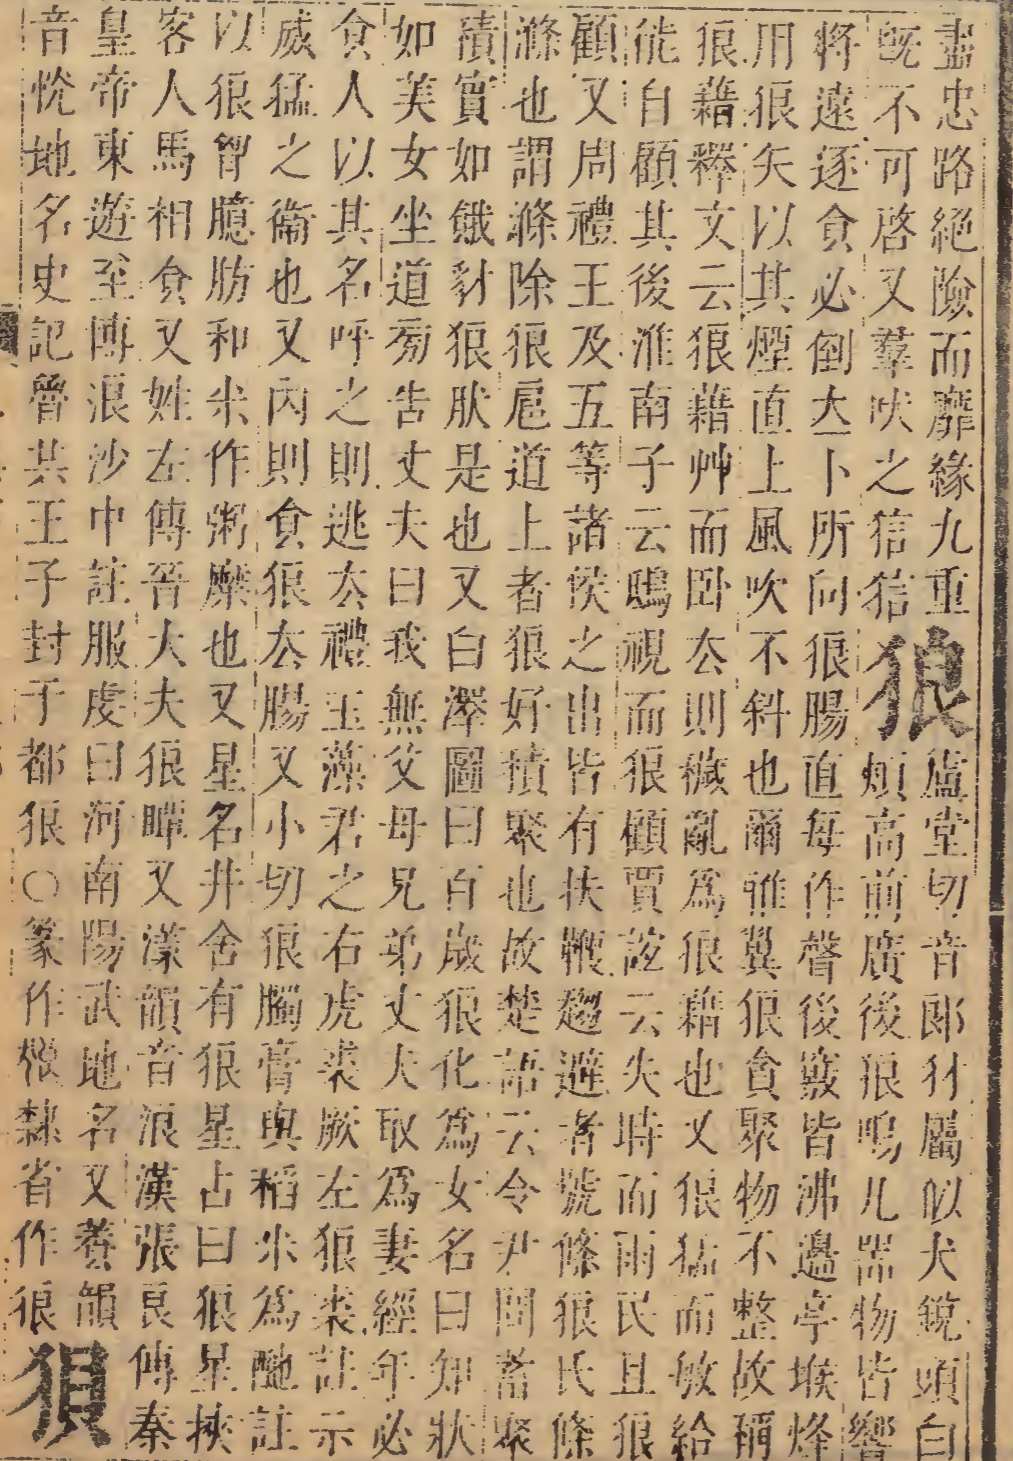 盡忠路絕險而靡緣九重狼盧堂切音郎犲屬似犬銳頭白
旣不可啓又羣吠之狺狺頰高前廣後狼鳴儿竅物皆響
將遠逐食必倒立卜所向狼腸直每作聲後竅皆沸邊亭堠烽
用狼矢以其煙直上風吹不斜也爾雅翼狼貪聚物不整故稱
狼藉釋文云狼藉艸而卧去則穢亂爲狼藉也又狼猛而敏給
能自顧其後淮南子云鴟視而狼顧賈誼云失時而雨民且狼
顧又周禮王及五等諸侯之出皆有扶鞭趨避者號條狼氏條
滌也謂滌除狼扈道上者狼好積聚也故楚語云令尹問蓄聚
積實如餓豺狼肰是也又白澤圖曰百歲狼化爲女名曰知狀
如美女坐道旁告丈夫曰我無父母兄弟丈夫取爲妻經年必
食人以其名呼之則逃去禮玉藻君之右虎裘厥左狼裘註示
威猛之衞也又內則食狼去腸又小切狼臅膏與稻米爲酏註
以狼胷臆肪和米作粥糜也又星名井舍有狼星占曰狼星挾
客人馬相食又姓左傳晉大夫狼瞫又漾韻音浪漢張良傳秦
皇帝東遊至博浪沙中註服虔曰河南陽武地名又養韻
音恍地名史記晉共王子封于都狼○篆作㹡隸省作狼狽